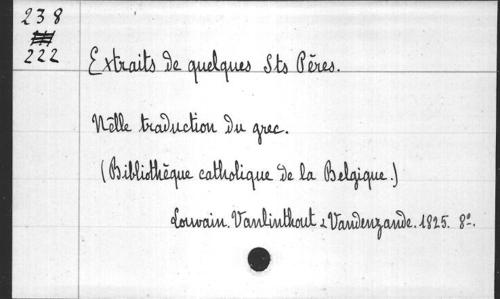 238
222
Extraits de quelques Sts Pères.
Nelle traduction du grec.
(Bibliothèque catholique de la Belgique.)
Louvain. Vanlinthout & Vandenzande. 1825. 8º.